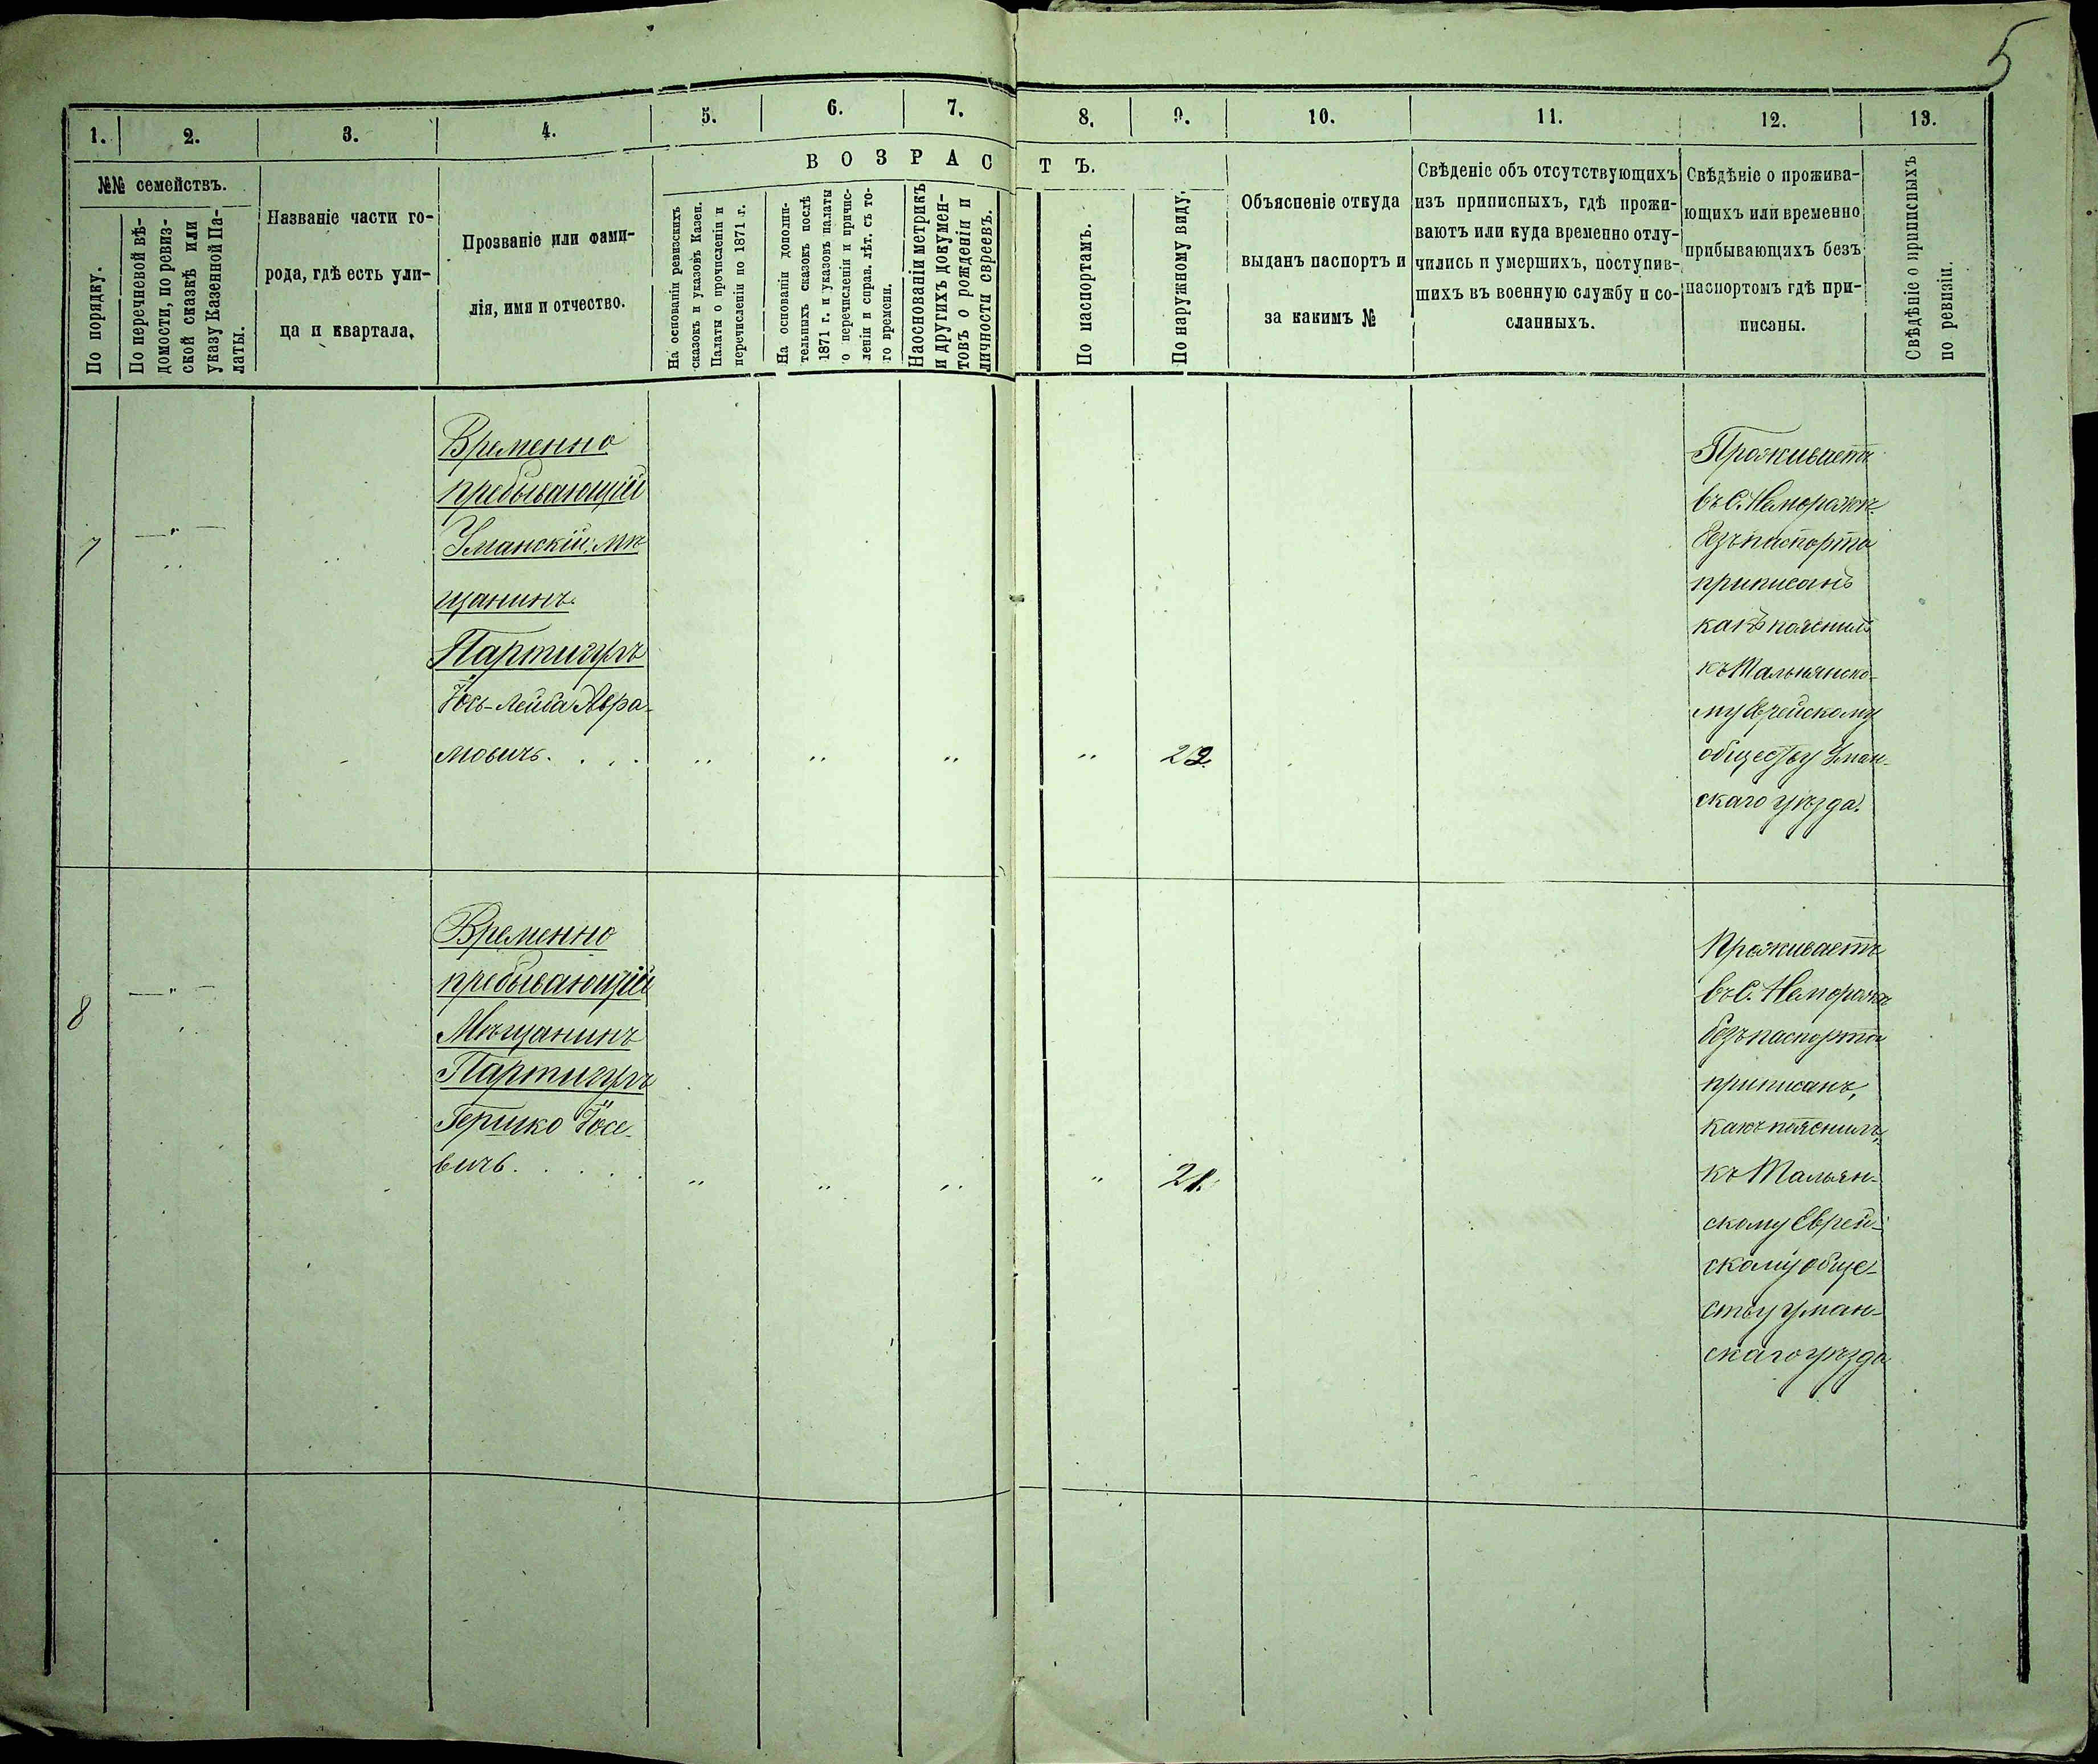 5
1. 2. 3. 4. 5. 6. 7. 8. 9. 10. 11. 12. 13.
В О З Р А С Т Ъ.
№№ семействъ.
По порядку.
По перечневой вѣ-
домости, по ревиз-
ской сказкѣ или
указу Казенной Па-
латы.
Названіе части го-
рода, гдѣ есть ули-
ца и квартала.
Прозваніе или фами-
лія, имя и отчество.
На основаніи ревизскихъ
сказокъ и указовъ Казен.
Палаты о прочисленіи и
перечисленіи по 1871 г.
На основаніи дополни-
тельныхъ сказокъ послѣ
1871 г. и указовъ палаты
о перечисленіи и причис-
леніи и справ. лѣт. съ то-
го времени.
На основаніи метрикъ
и другихъ докумен-
товъ о рожденіи и
личности евреевъ.
По паспортамъ.
По наружному виду.
Объясненіе откуда
выданъ паспортъ и
за какимъ №
Свѣденіе объ отсутствующихъ
изъ приписныхъ, гдѣ прожи-
ваютъ или куда временно отлу-
чились и умершихъ, поступив-
шихъ въ военную службу и со-
сланныхъ.
Свѣдѣніе о прожива-
ющихъ или временно
прибывающихъ безъ
паспортомъ гдѣ при-
писаны.
Свѣдѣніе о приписныхъ
по ревизіи.
7
— " —
Временно
пребывающій
Уманскій мѣ
щанинъ
Партигулъ
Іось-Лейба Авра-
мовичъ. . . .
" " " " 22.
Проживаетъ
въ С. Неморожѣ
безъ паспорта
приписанъ
какъ пояснилъ
къ Тальнянско-
му Еврейскому
обществу Уман-
скаго уѣзда.
8
— " —
Временно
пребывающій
Мѣщанинъ
Партигулъ
Гершко Іосе-
вичъ. . . . .
" " " " 21.
Проживаетъ
въ С. Неморожѣ
безъ паспорта
приписанъ,
какъ пояснилъ,
къ Тальян-
скому Еврей-
скому обще-
ству Уман-
скаго уѣзда